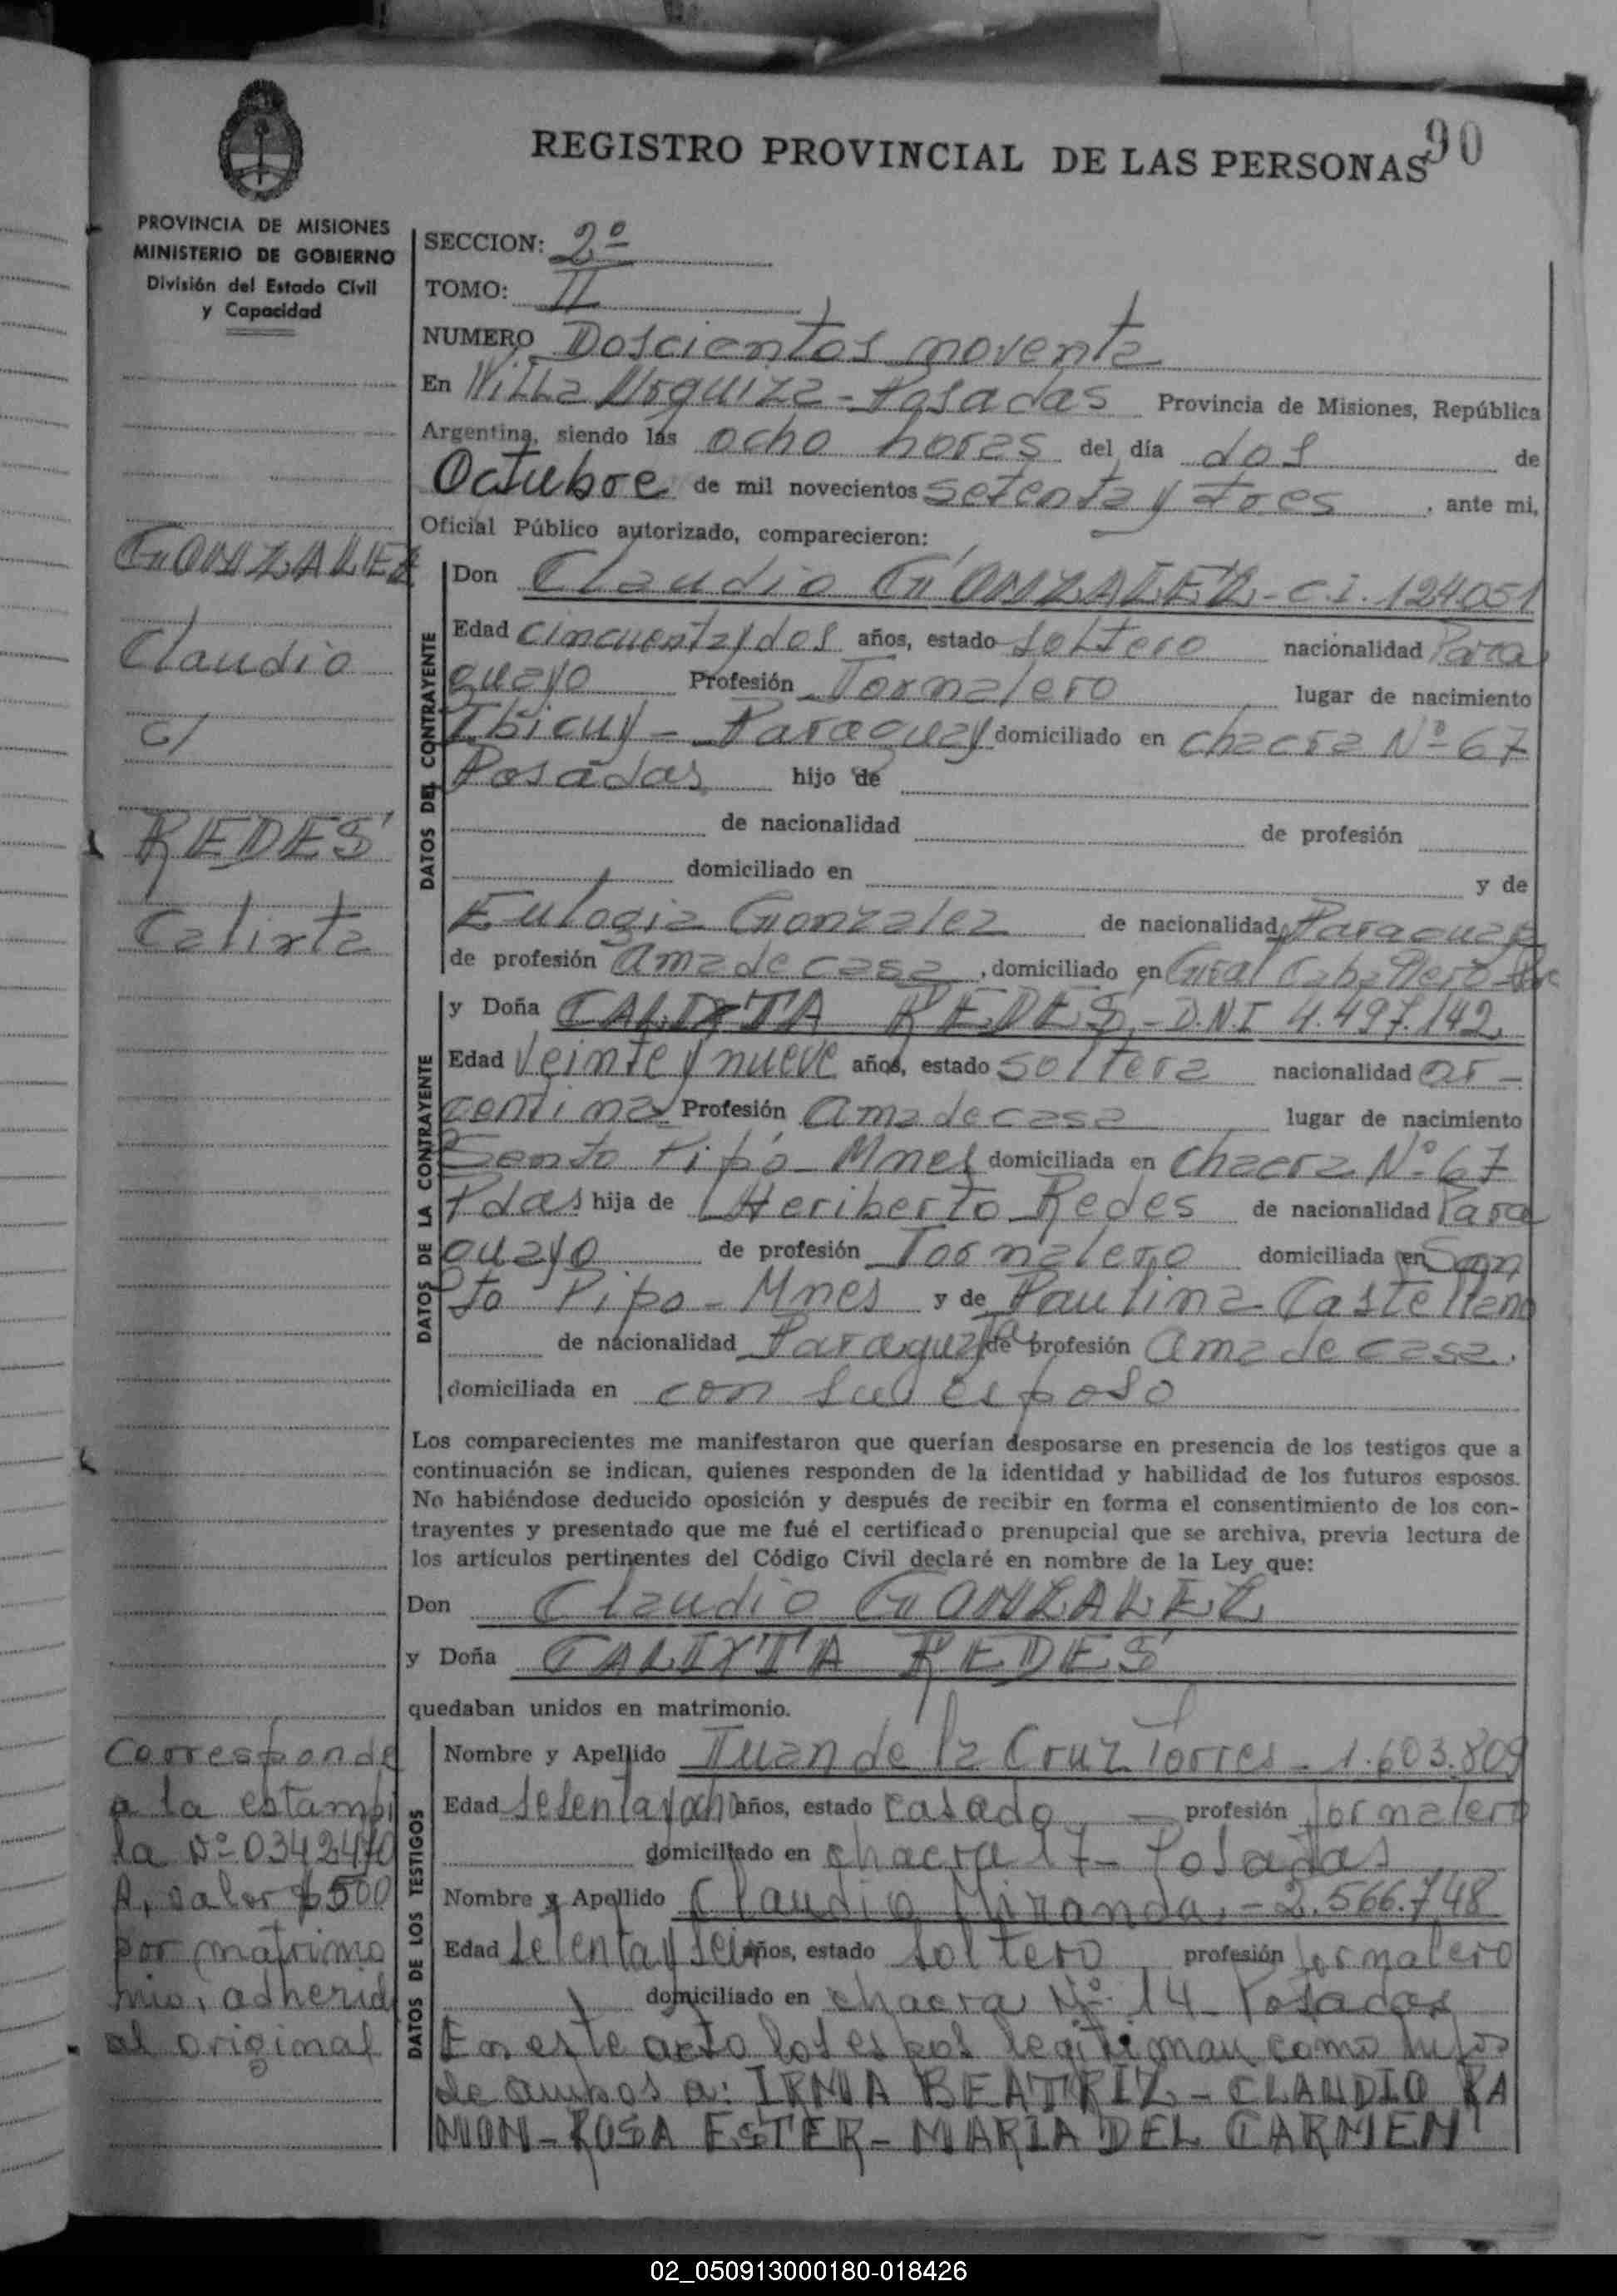 90
REGISTRO PROVINCIAL DE LAS PERSONAS
PROVINCIA DE MISIONES
MINISTERIO DE GOBIERNO
División del Estado Civil
y Capacidad
SECCION: 2º
TOMO: II
NUMERO Doscientos noventa
En Villa Urquiza - Posadas Provincia de Misiones, República
Argentina, siendo las ocho horas del día dos de
Octubre de mil novecientos setenta y tres, ante mi,
Oficial Público autorizado, comparecieron:
GONZALEZ
Claudio
c/
REDES
Calixta
DATOS DEL CONTRAYENTE
Don Claudio GONZALEZ - C.I. 124.051
Edad cincuenta y dos años, estado soltero nacionalidad Para
guayo Profesión Jornalero lugar de nacimiento
Ibicuy - Paraguay domiciliado en chacra Nº 67
Posadas hijo de
de nacionalidad de profesión
domiciliado en y de
Eulogia Gonzalez de nacionalidad Paraguaya
de profesión ama de casa, domiciliado en Gral Caballero
DATOS DE LA CONTRAYENTE
y Doña CALIXTA REDES, - D.N.I 4.497.142
Edad Veinte y nueve años, estado soltera nacionalidad ar-
gentina Profesión ama de casa lugar de nacimiento
Santo Pipó - Mnes domiciliada en chacra Nº 67
Pdas hija de Heriberto Redes de nacionalidad Para
guayo de profesión Jornalero domiciliada en San
to Pipo - Mnes y de Paulina Castellano
de nacionalidad Paraguaya de profesión ama de casa.
domiciliada en con su esposo
Los comparecientes me manifestaron que querían desposarse en presencia de los testigos que a
continuación se indican, quienes responden de la identidad y habilidad de los futuros esposos.
No habiéndose deducido oposición y después de recibir en forma el consentimiento de los con-
trayentes y presentado que me fué el certificado prenupcial que se archiva, previa lectura de
los artículos pertinentes del Código Civil declaré en nombre de la Ley que:
Don Claudio GONZALEZ
y Doña CALIXTA REDES
quedaban unidos en matrimonio.
Corresponde
a la estampi
la Nº 0342470
A, valor $ 500
por matrimo
nio, adherid
al original
DATOS DE LOS TESTIGOS
Nombre y Apellido Juan de la Cruz Torres - 1.603.809
Edad sesenta y ocho años, estado casado - profesión Jornalero
domiciliado en chacra 17 - Posadas
Nombre y Apellido Claudio Miranda, - 2.566.748
Edad setenta y seis años, estado soltero profesión Jornalero
domiciliado en chacra Nº 14 - Posadas
En este acto los espos legitiman como hijos
de ambos a: IRMA BEATRIZ - CLAUDIO RA
MON - ROSA ESTER - MARIA DEL CARMEN
02_050913000180-018426